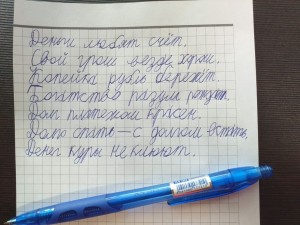 Деньги любят счёт.
Свой грош везде хорош.
Копейка рубль бережёт.
Богатство разум рождает.
Долг платежом красен.
Долго спать – с долгом встать.
Денег куры не клюют.